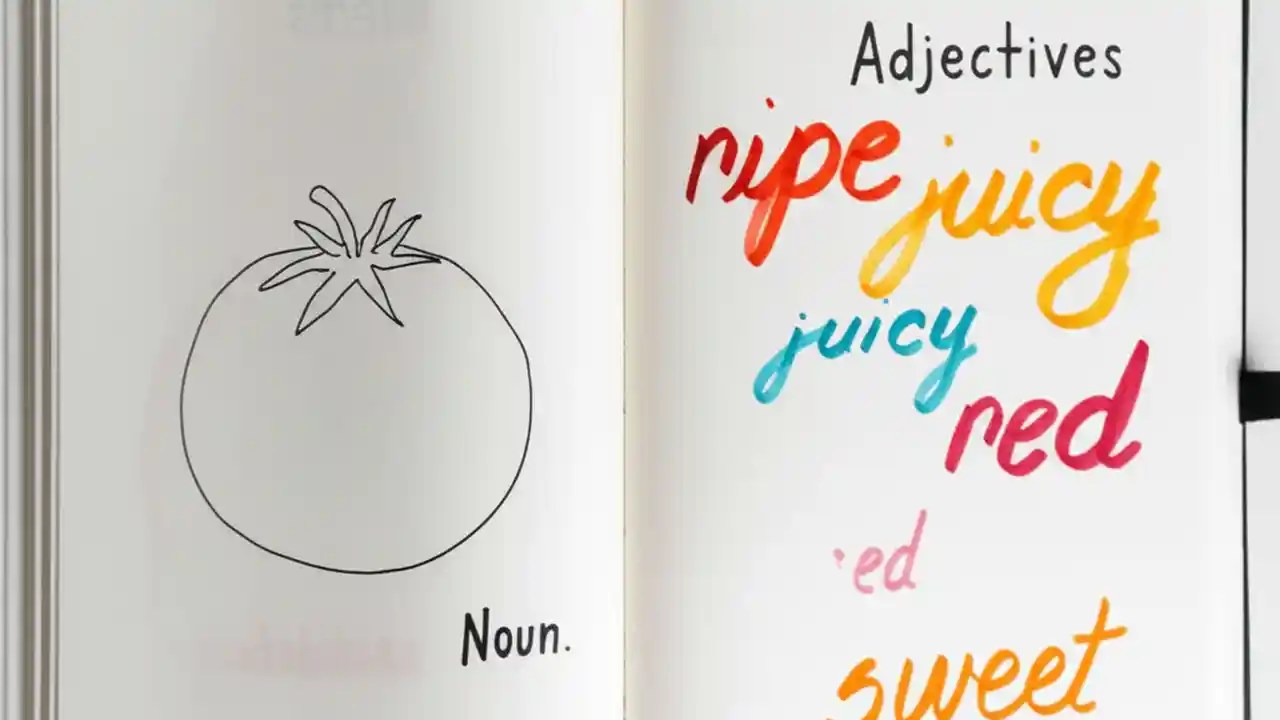 Noun.
Adjectives
ripe juicy
juicy
red
red
sweet